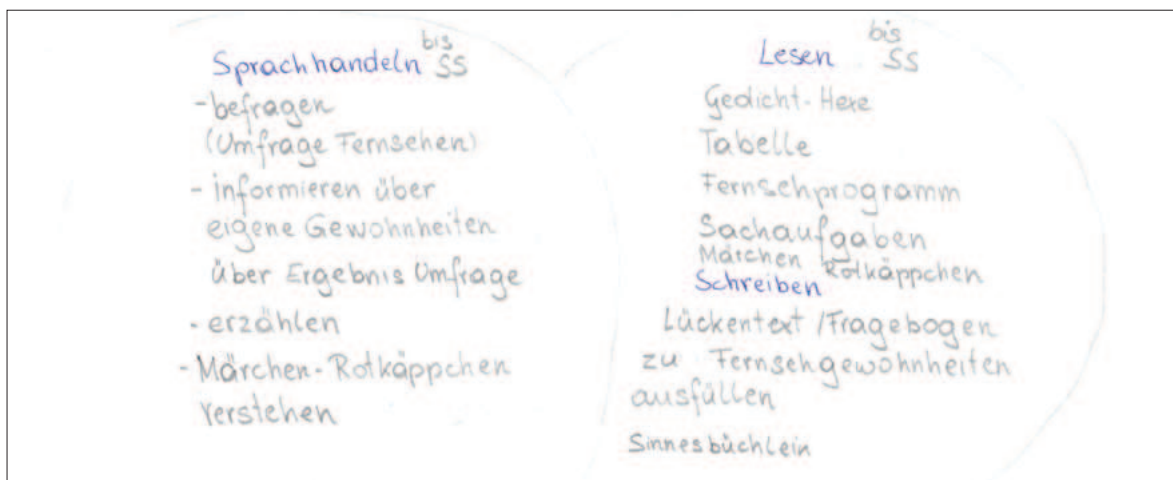 Sprachhandeln bis SS
- befragen
(Umfrage Fernsehen)
- informieren über
eigene Gewohnheiten
über Ergebnis Umfrage
- erzählen
- Märchen - Rotkäppchen
verstehen
Lesen bis SS
Gedicht - Hexe
Tabelle
Fernsehprogramm
Sachaufgaben
Märchen Rotkäppchen
Schreiben
Lückentext / Fragebogen
zu Fernsehgewohnheiten
ausfüllen
Sinnesbüchlein